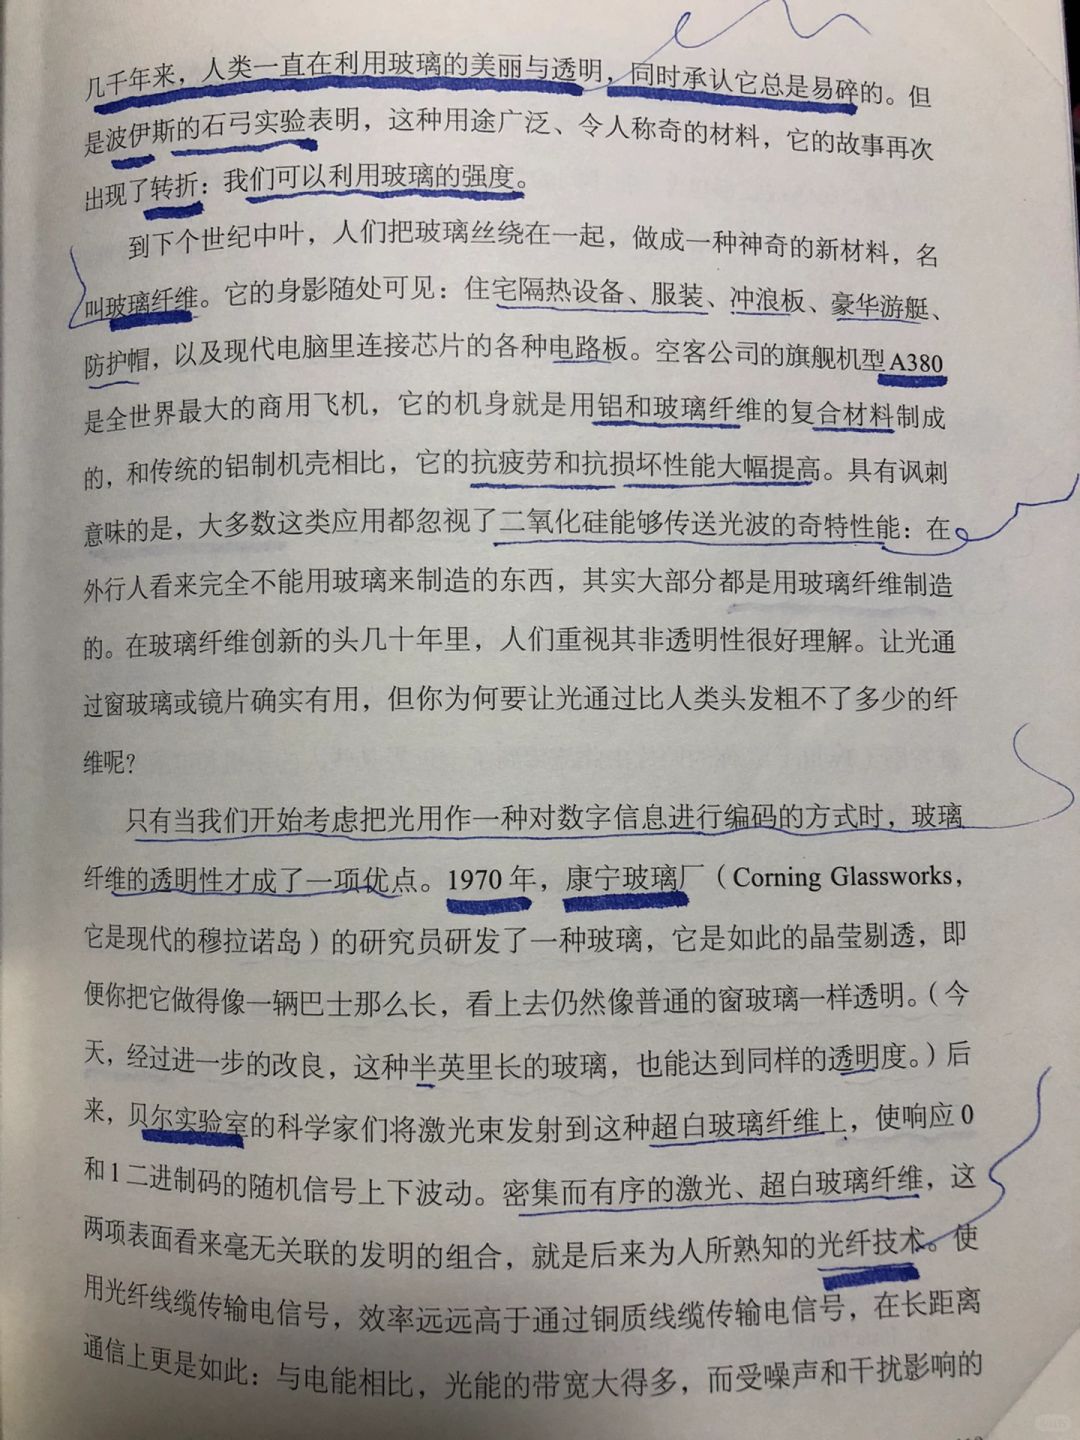 几千年来，人类一直在利用玻璃的美丽与透明，同时承认它总是易碎的。但
是波伊斯的石弓实验表明，这种用途广泛、令人称奇的材料，它的故事再次
出现了转折：我们可以利用玻璃的强度。
到下个世纪中叶，人们把玻璃丝绕在一起，做成一种神奇的新材料，名
叫玻璃纤维。它的身影随处可见：住宅隔热设备、服装、冲浪板、豪华游艇、
防护帽，以及现代电脑里连接芯片的各种电路板。空客公司的旗舰机型A380
是全世界最大的商用飞机，它的机身就是用铝和玻璃纤维的复合材料制成
的，和传统的铝制机壳相比，它的抗疲劳和抗损坏性能大幅提高。具有讽刺
意味的是，大多数这类应用都忽视了二氧化硅能够传送光波的奇特性能：在
外行人看来完全不能用玻璃来制造的东西，其实大部分都是用玻璃纤维制造
的。在玻璃纤维创新的头几十年里，人们重视其非透明性很好理解。让光通
过窗玻璃或镜片确实有用，但你为何要让光通过比人类头发粗不了多少的纤
维呢？
只有当我们开始考虑把光用作一种对数字信息进行编码的方式时，玻璃
纤维的透明性才成了一项优点。1970年，康宁玻璃厂（Corning Glassworks，
它是现代的穆拉诺岛）的研究员研发了一种玻璃，它是如此的晶莹剔透，即
便你把它做得像一辆巴士那么长，看上去仍然像普通的窗玻璃一样透明。（今
天，经过进一步的改良，这种半英里长的玻璃，也能达到同样的透明度。）后
来，贝尔实验室的科学家们将激光束发射到这种超白玻璃纤维上，使响应0
和1二进制码的随机信号上下波动。密集而有序的激光、超白玻璃纤维，这
两项表面看来毫无关联的发明的组合，就是后来为人所熟知的光纤技术。使
用光纤线缆传输电信号，效率远远高于通过铜质线缆传输电信号，在长距离
通信上更是如此：与电能相比，光能的带宽大得多，而受噪声和干扰影响的